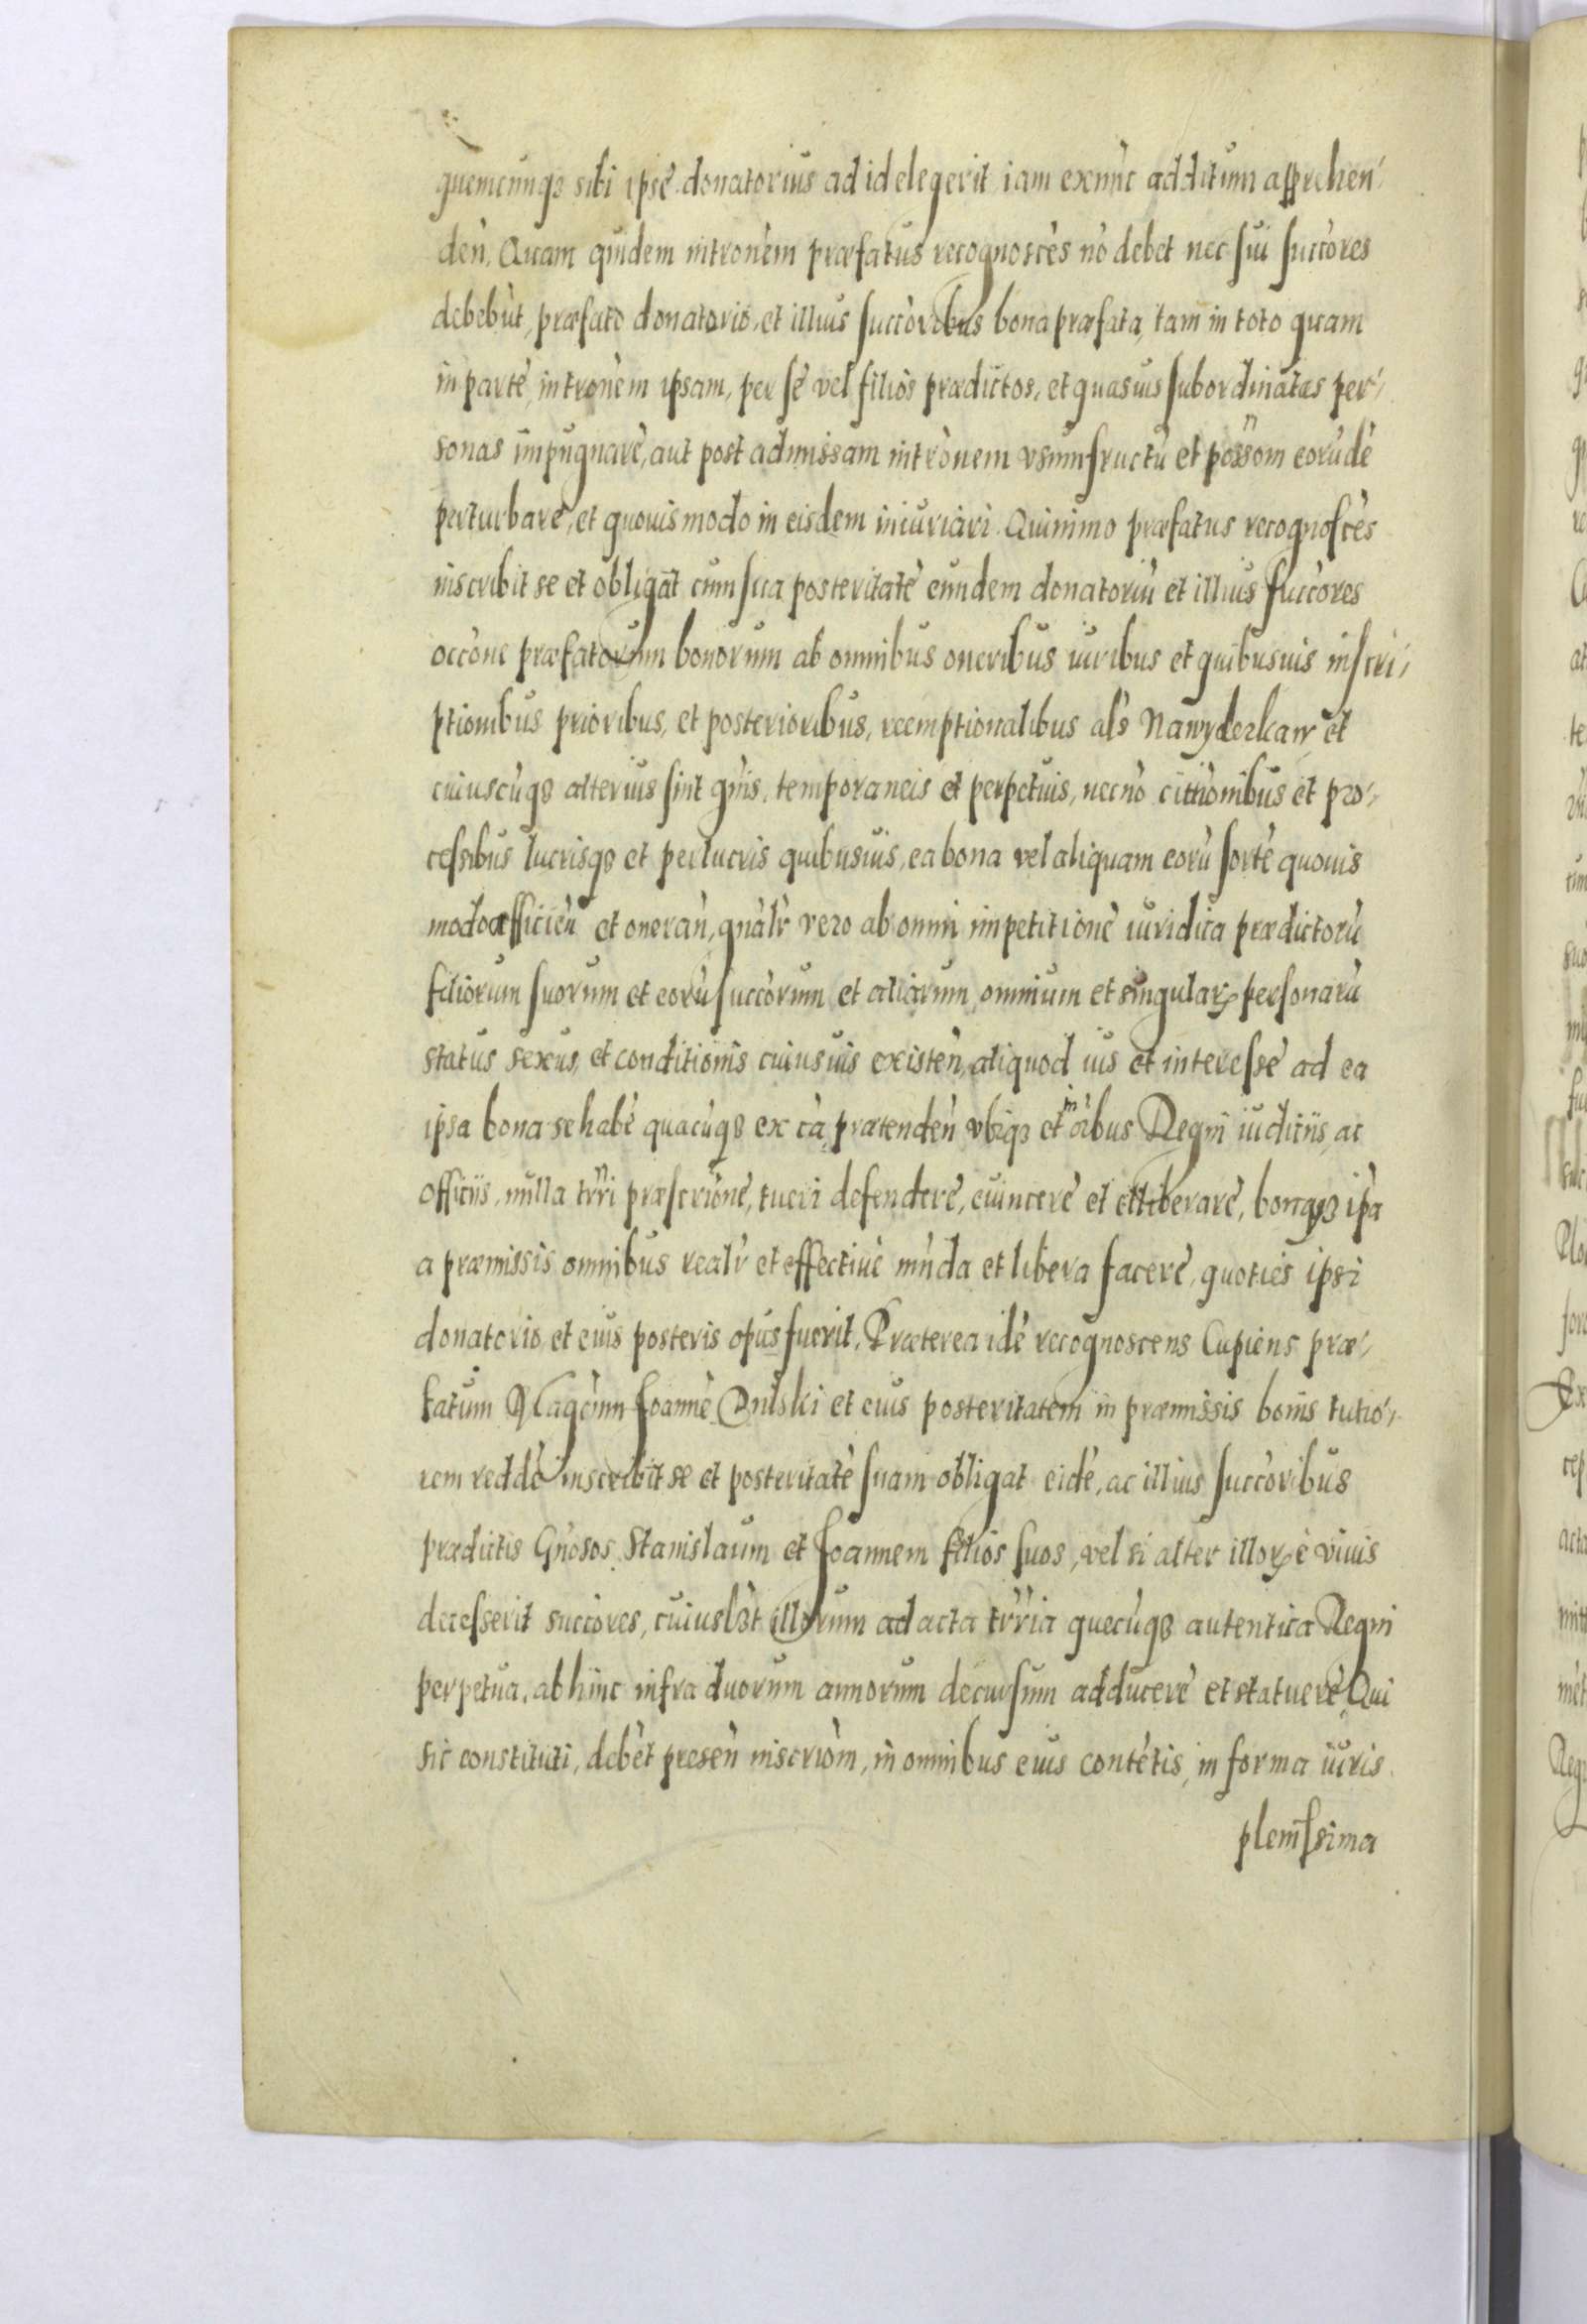 quemcunqꝫ sibi ipse donatorius ad id elegerit iam exnùc additum apprehen-
deǹ. Quam quidem intronèm præfatus recognoscès nò debet nec sui succòres
debebùt, præfato donatorio, et illius succòribus bona præfata, tam in toto quam
in parte, intronèm ipsam, per se vel filios prædictos, et quasuis subordinatas per-
sonas impugnare, aut post admissam intrònem vsumfructù et possom eorùdè
perturbare, et quouis modo in eisdem iniuriari. Quinimo præfatus recognoscès
inscribit se et obligat cum sua posteritatè eundem donatoriù et illius succòres
occòne præfatorum bonorum ab omnibus oneribus iuribus et quibusuis inscri-
ptionibus prioribus, et posterioribus, reemptionalibus als Nawyderkaw et
cuiuscùqꝫ alterius sint gñis, temporaneis et perpetuis, necnò cittiònibus et pro-
cessibus lucrisqꝫ et perlucris quibusuis, ea bona vel aliquam eorù sortè quouis
modo afficieǹ et oneraǹ, gnàlr vero ab omni impetitionè iuridica prædictorù
filiorum suorum et eorù succòrum et aliarum omnium et singularꝝ personarù
status sexus, et conditionis cuiusuis existeǹ, aliquod ius et interesse ad ea
ipsa bona se habè quacùqꝫ ex cà prætendeǹ vbiqꝫ et in oìbus Regni iudiciis, ac
officiis, nulla trri præscriònè, tueri defendere, euincere et elliberare, bonaqꝫ ipà
a præmissis omnibus realr et effectiue mùda et libera facere, quoties ipsi
donatorio, et eius posteris opus fuerit. Præterea idè recognoscens Cupiens præ-
fatum Magcùm Joannè Dulski et eius posteritatem in præmissis bonis tutio-
rem reddè inscribit se et posteritatè suam obligat eidè, ac illius succòribus
prædictis Gnòsos Stanislaum et Joannem filios suos, vel si alter illorꝝ è viuis
decesserit succòres, cuiuslꝫt illorum ad acta trria quecùqꝫ autentica Regni
perpetua, ab hinc infra duorum annorum decursum adducere et statuere, Qui
sic constituti, debèt preseǹ inscriòm, in omnibus eius contètis, in forma iuris
plenissima